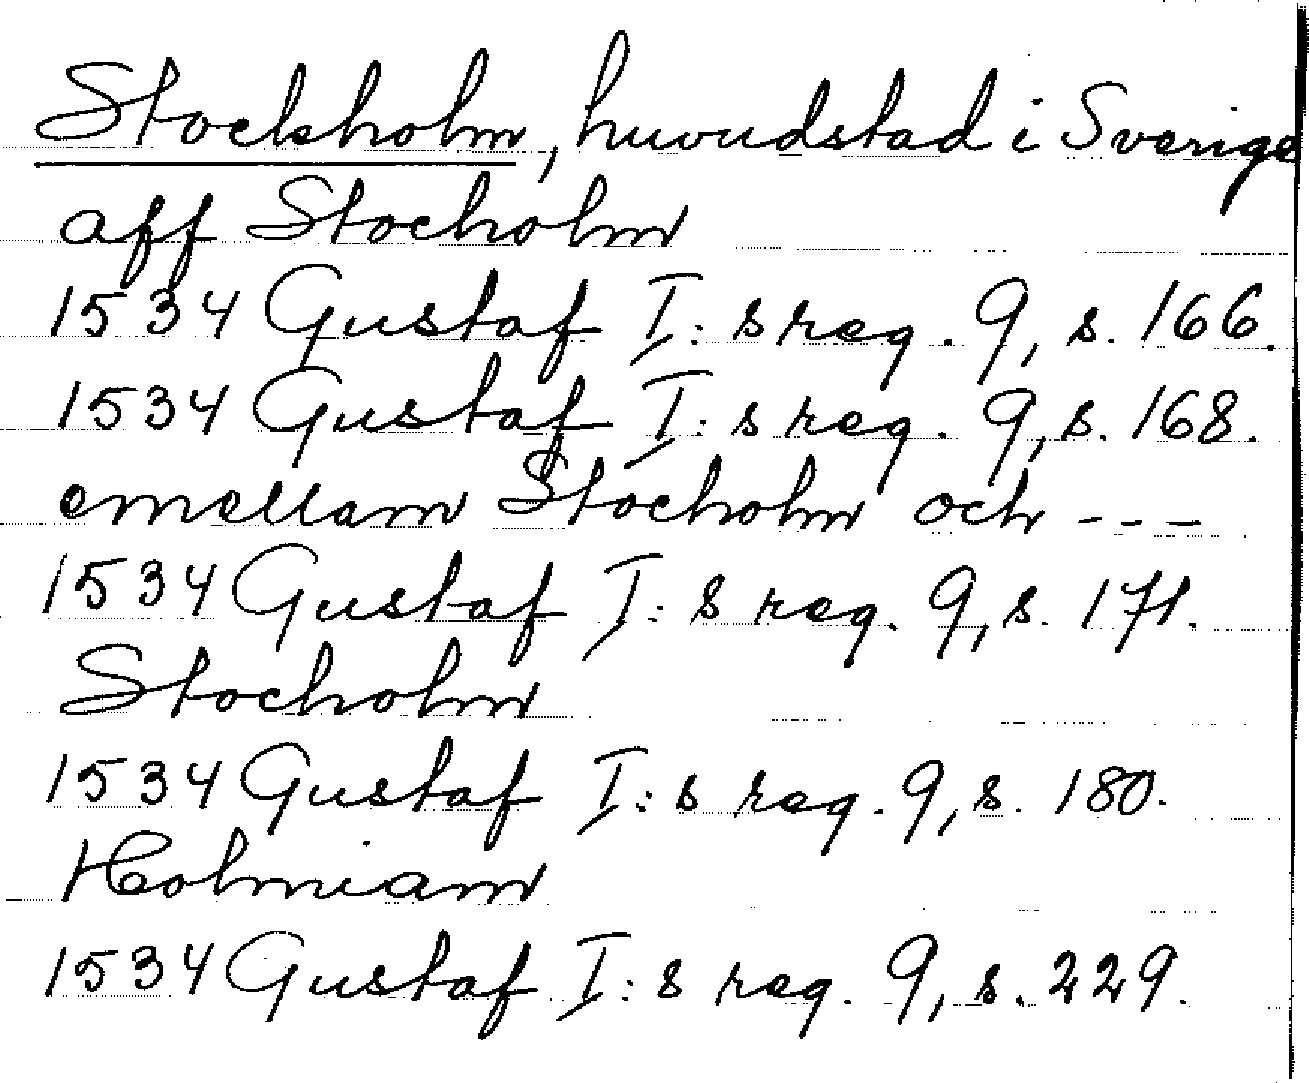 Stockholm, huvudstad i Sverige
aff Stocholm
1534 Gustaf I:s reg. 9, s. 166.
1534 Gustaf I:s reg. 9, s. 168.
emellam Stocholm och ---
1534 Gustaf I:s reg. 9, s. 171.
Stocholm
1534 Gustaf I:s reg. 9, s. 180.
Holmiam
1534 Gustaf I:s reg. 9, s. 229.